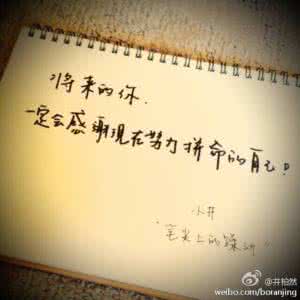 将来的你.
一定会感谢现在努力拼命的自己!
小井
"笔尖上的躁动"
@井柏然
weibo.com/boranjing